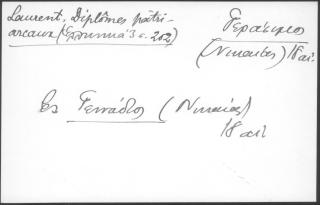 Laurent, Diplômes patri-
arcaux (Ἑλληνικά 3 σ. 202)
Γεράσιμος
(Νικαίας) 18 αἰ.
βλ Γεννάδιος (Νικαίας)
18 αἰ